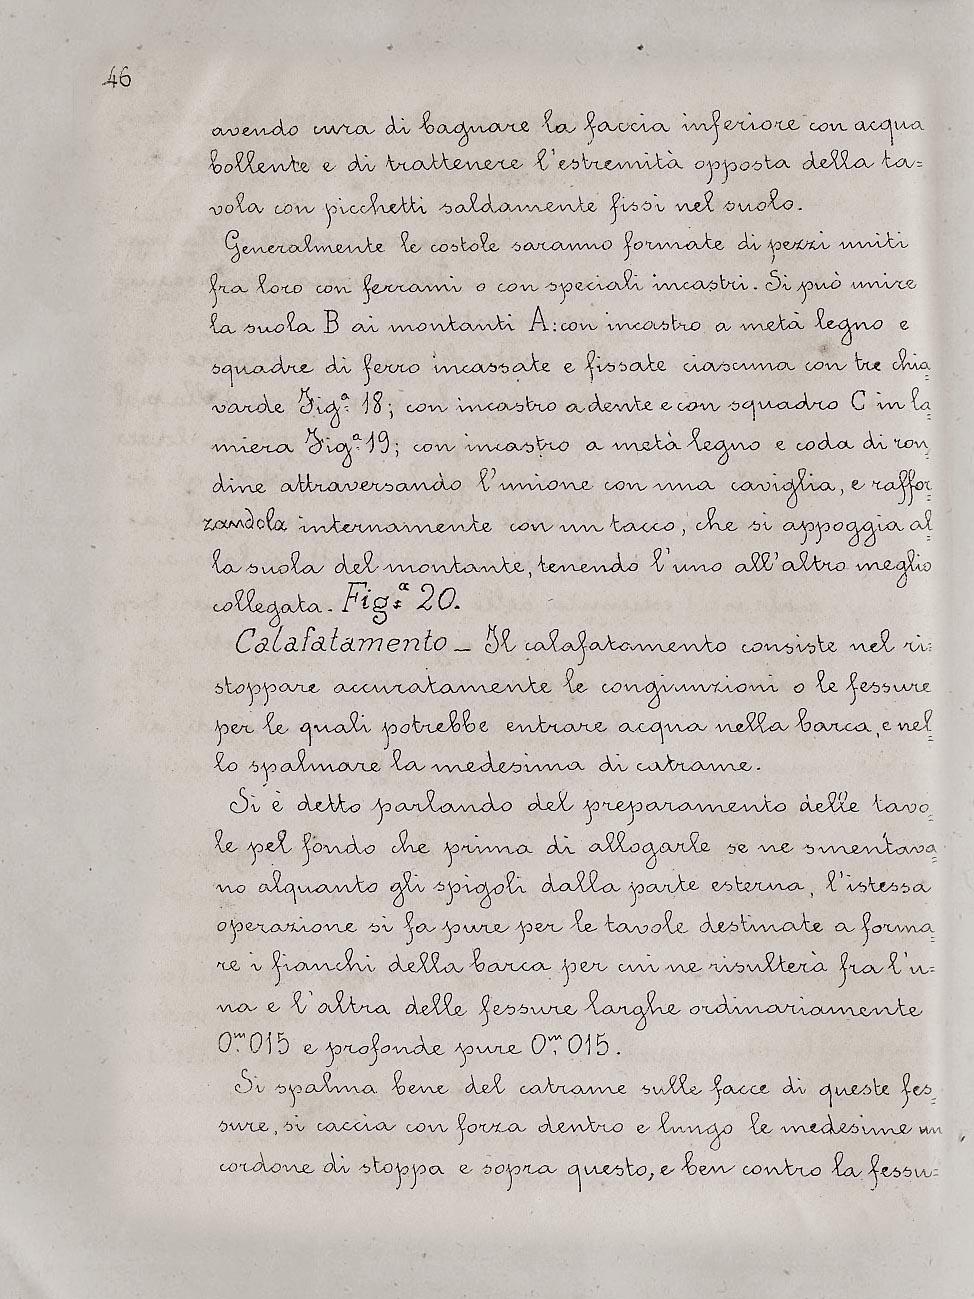 46
avendo cura di bagnare la faccia inferiore con acqua
bollente e di trattenere l'estremità opposta della ta=
vola con picchetti saldamente fissi nel suolo.
Generalmente le costole saranno formate di pezzi uniti
fra loro con ferrami o con speciali incastri. Si può unire
la suola B ai montanti A: con incastro a metà legno e
squadre di ferro incassate e fissate ciascuna con tre chia=
varde Figª. 18; con incastro a dente e con squadro C in la=
miera Figª. 19; con incastro a metà legno e coda di ron=
dine attraversando l'unione con una caviglia, e raffor=
zandola internamente con un tacco, che si appoggia al=
la suola del montante, tenendo l'uno all'altro meglio
collegata. Figª. 20.
Calafatamento _ Il calafatamento consiste nel ri=
stoppare accuratamente le congiunzioni o le fessure
per le quali potrebbe entrare acqua nella barca, e nel=
lo spalmare la medesima di catrame.
Si è detto parlando del preparamento delle tavo=
le pel fondo che prima di allogarle se ne smentava=
no alquanto gli spigoli dalla parte esterna, l'istessa
operazione si fa pure per le tavole destinate a forma=
re i fianchi della barca per cui ne risulterà fra l'u=
na e l'altra delle fessure larghe ordinariamente
0ᵐ,015 e profonde pure 0ᵐ,015.
Si spalma bene del catrame sulle facce di queste fes=
sure, si caccia con forza dentro e lungo le medesime un
cordone di stoppa e sopra questo, e ben contro la fessu=